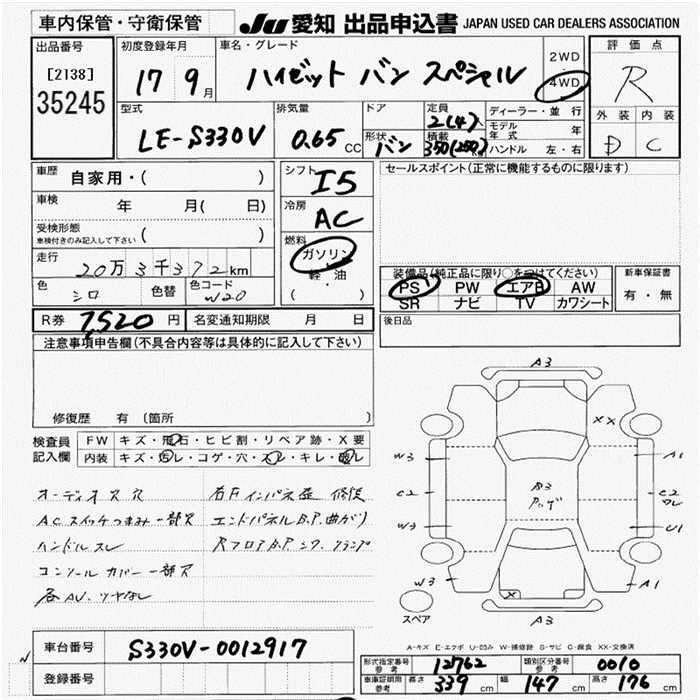 車内保管・守衛保管
JU 愛知 出品申込書 JAPAN USED CAR DEALERS ASSOCIATION
出品番号
[2138]
35245
初度登録年月
17 9月
車名・グレード
ハイゼット バン スペシャル
2WD
4WD
評価点
R
外装 内装
D C
型式
LE-S330V
排気量
0.65 CC
ドア
形状
バン
定員
2(4)人
積載
350(250)kg
ディーラー・並行
モデル年式 年
ハンドル 左・右
車歴
自家用・( )
車検
年 月( 日)
受検形態
車検付きのみ記入して下さい ( )
走行
20万3千372km
色
シロ
色替
色コード
W20
シフト
I5
冷房
AC
燃料
ガソリン
軽・油
( ・ )
セールスポイント(正常に機能するものに限ります)
装備品(純正品に限り○をつけてください)
PS PW エアB AW
SR ナビ TV カワシート
新車保証書
有・無
R券 7,520 円
名変通知期限 月 日
後日品
注意事項申告欄(不具合内容等は具体的に記入して下さい)
修復歴 有 (箇所
検査員記入欄
FW キズ・飛石・ヒビ割・リペア跡・X要
内装 キズ・汚レ・コゲ・穴・スレ・キレ・破レ
オーディオス穴
ACスイッチつまみ一部欠
ハンドルスレ
コンソールカバー一部欠
各AV.ツヤなし
右Fインパネ歪 修復
エンドパネルB.P.曲がり
RフロアB.P.シワ.クランプ
A3
XX
W3
C2
W3
W3
B3
A1
C2
ワレ
U1
A1
X
スペア
A3
A-キズ E-エクボ U-凹み W-補修跡 S-サビ C-腐食 XX-交換済
車台番号
S330V-0012917
登録番号
N
形式指定番号 参考 12762
類別区分番号 参考 0010
車庫証明用 参考 長さ 339 cm 幅 147 cm 高さ 176 cm